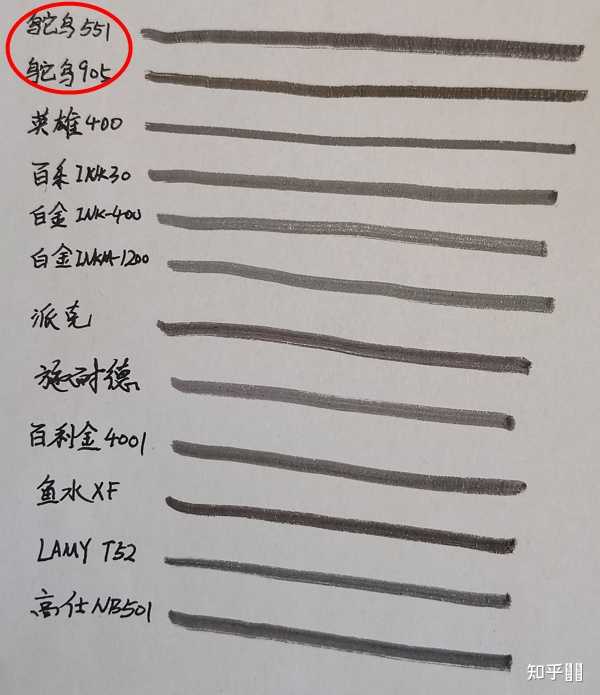 鸵鸟551
鸵鸟905
英雄400
百乐INK30
白金INK-400
白金INKM-1200
派克
施耐德
百利金4001
鱼水XF
LAMY T52
高仕NB501
知乎